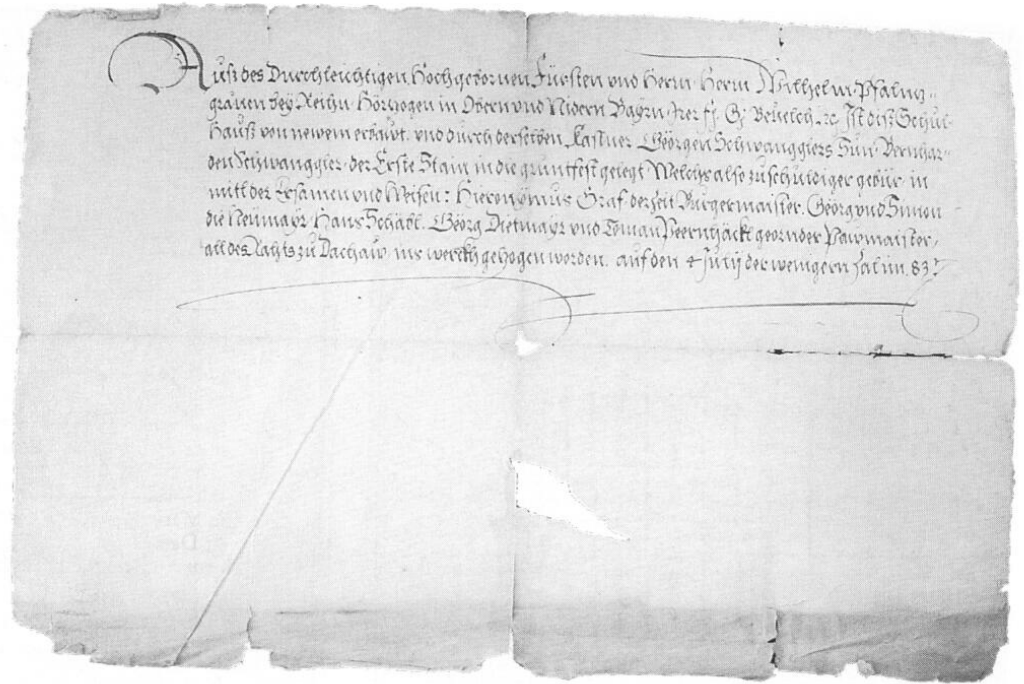 Auß des Durchleichtigen Hochgebornen Fürsten vnd Herrn Herrn Wilhelm Pfaltz=
grauen bey Rhein Hörtzogen in Obern vnd Nidern Bayrn Irer fl. G. Beuelch ꝛc. Ist diß Schul
Hauß von newem erbawt vnd durch derselben Kastner Georgen Schwanggiers Sun Bernhar=
den Schwanggier der Erste Stain in die gruntfest gelegt Welchs also zu schuldiger gebür in
mitl der Ersamen vnd Weisen: Hieronymus Graf derzeit Burgermaister. Georg vnd Simon
die Neumayr Hans Schäbl. Georg Dietmayr vnd Toman geornder Pawmaister
all des Rahts zu Dachaw ins werckh gezogen worden. auf den 4 Julij der wenigern Zal im 83.